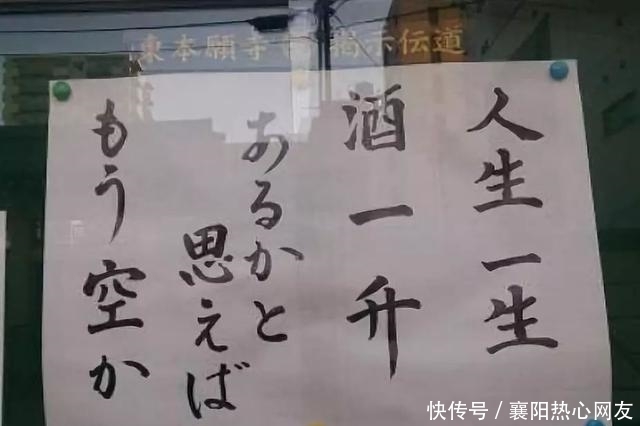 東本願寺 掲示伝道
人生一生
酒一升
あるかと
思えば
もう空か
快传号/襄阳热心网友